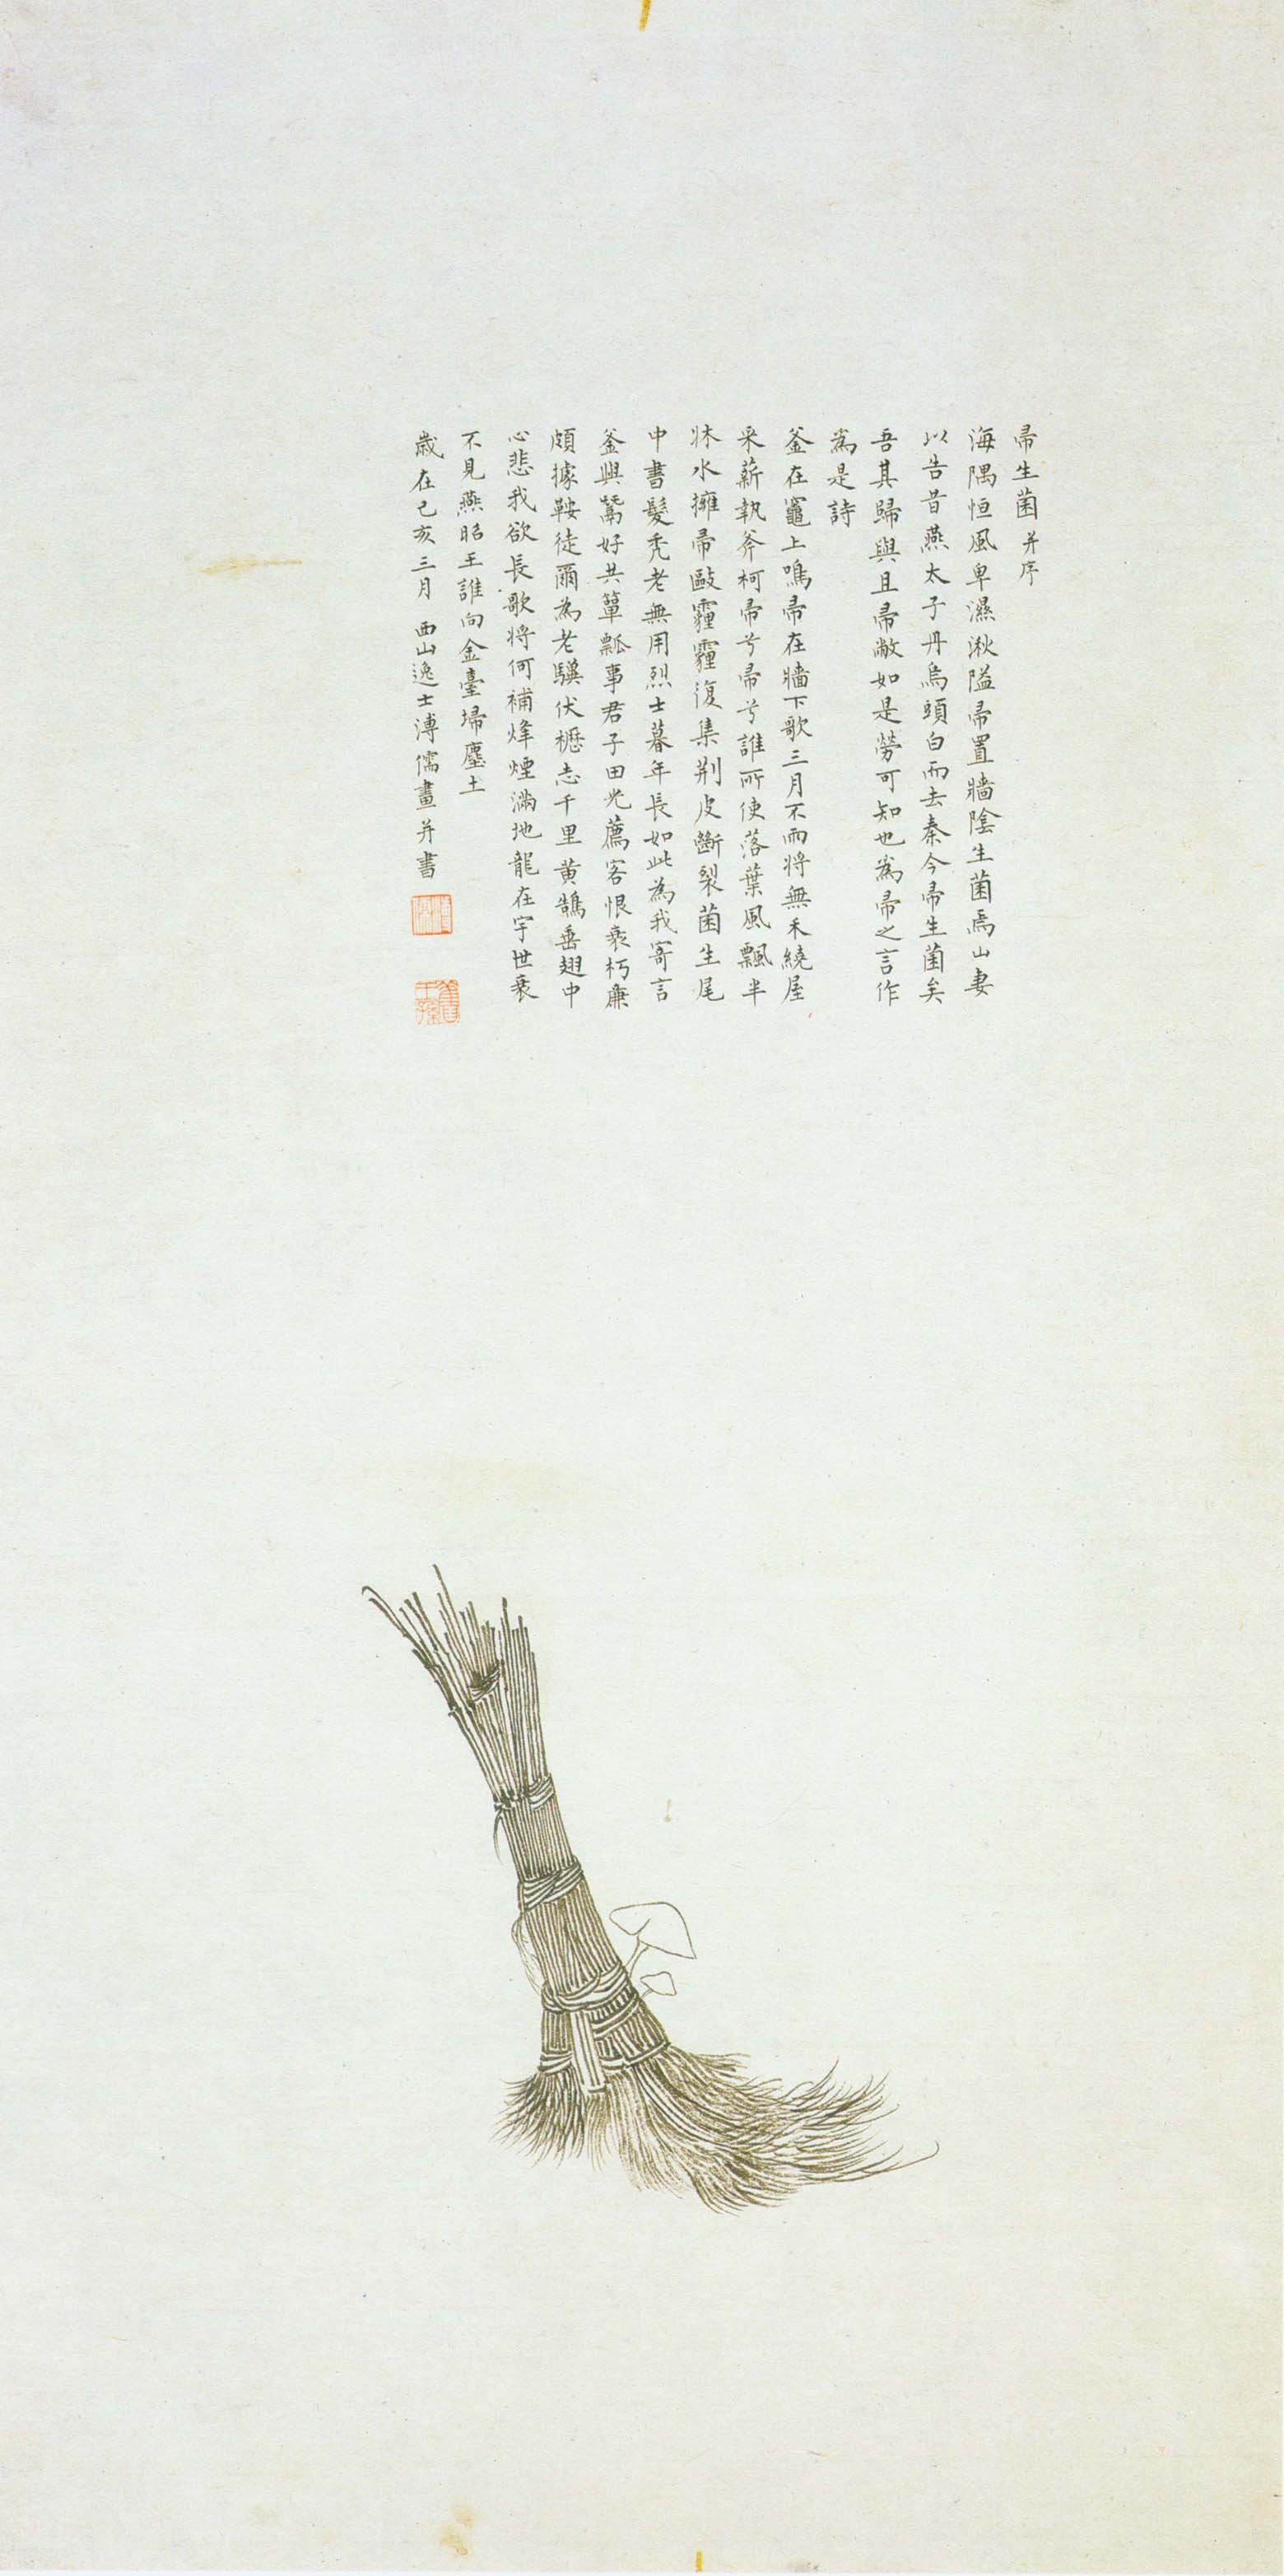 帚生菌并序
海隅恒風卑濕湫隘帚置牆陰生菌焉山妻
以告昔燕太子丹烏頭白而去秦今帚生菌矣
吾其歸與且帚敝如是勞可知也為帚之言作
為是詩
釜在竈上鳴帚在牆下歌三月不雨將無禾繞屋
采薪執斧柯帚兮帚兮誰所使落葉風飄半
牀水擁帚敺霾霾復集荆皮斷裂菌生尾
中書髮秃老無用烈士暮年長如此為我寄言
釜與鬵好共簞瓢事君子田光薦客恨衰朽廉
頗據鞍徒爾為老驥伏櫪志千里黃鵠垂翅中
心悲我欲長歌將何補烽煙滿地龍在宇世衰
不見燕昭王誰向金臺埽塵土
歲在己亥三月 西山逸士溥儒畫并書
舊王孫